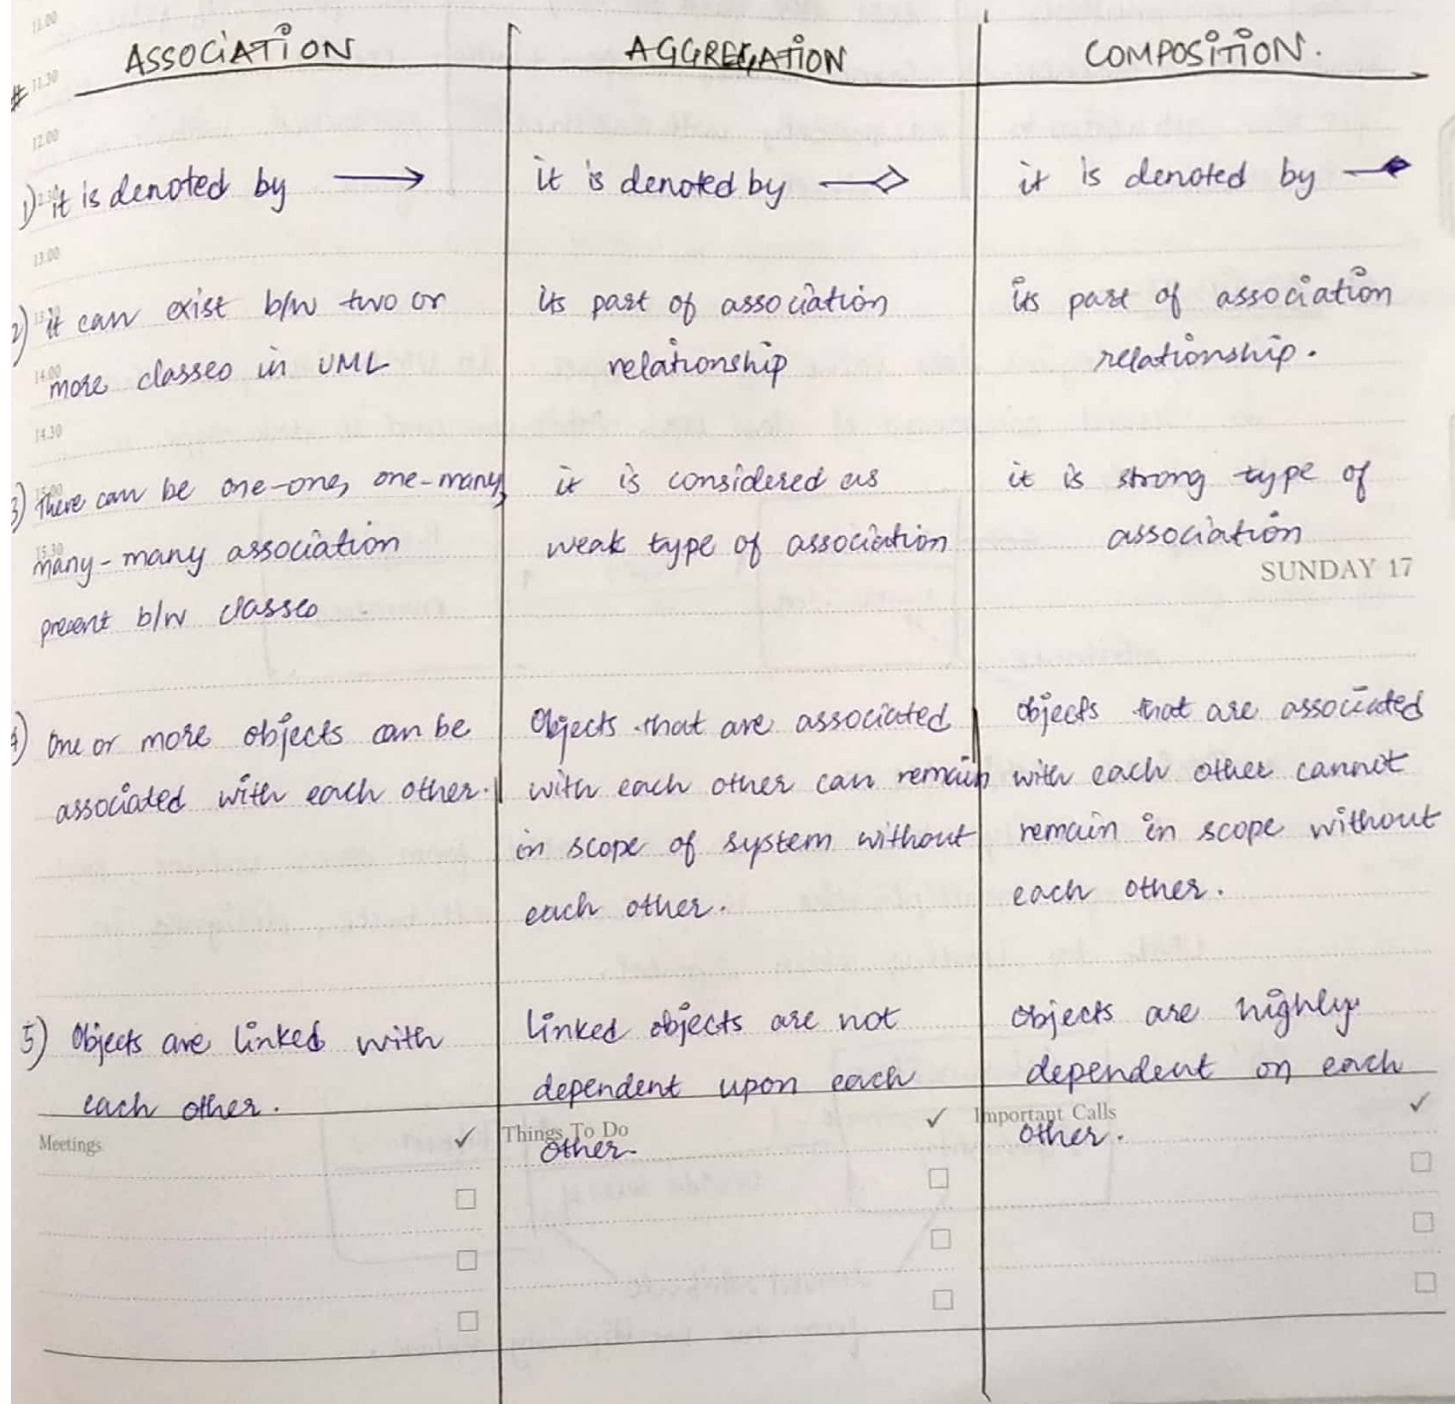 11.00
ASSOCIATION
AGGREGATION
COMPOSITION.
#
11.30
12.00
1) it is denoted by →
it is denoted by
it is denoted by
13.00
2) it can exist b/w two or
more classes in UML
its part of association
relationship
its part of association
relationship.
14.00
14.30
3) there can be one-one, one-many,
many-many association
present b/w classes
it is considered as
weak type of association
it is strong type of
association
15.30
SUNDAY 17
4) One or more objects can be
associated with each other.
Objects that are associated
with each other can remain
in scope of system without
each other.
objects that are associated
with each other cannot
remain in scope without
each other.
5) Objects are linked with
each other.
linked objects are not
dependent upon each
other.
objects are highly
dependent on each
other.
Meetings ✓
Things To Do ✓
Important Calls ✓